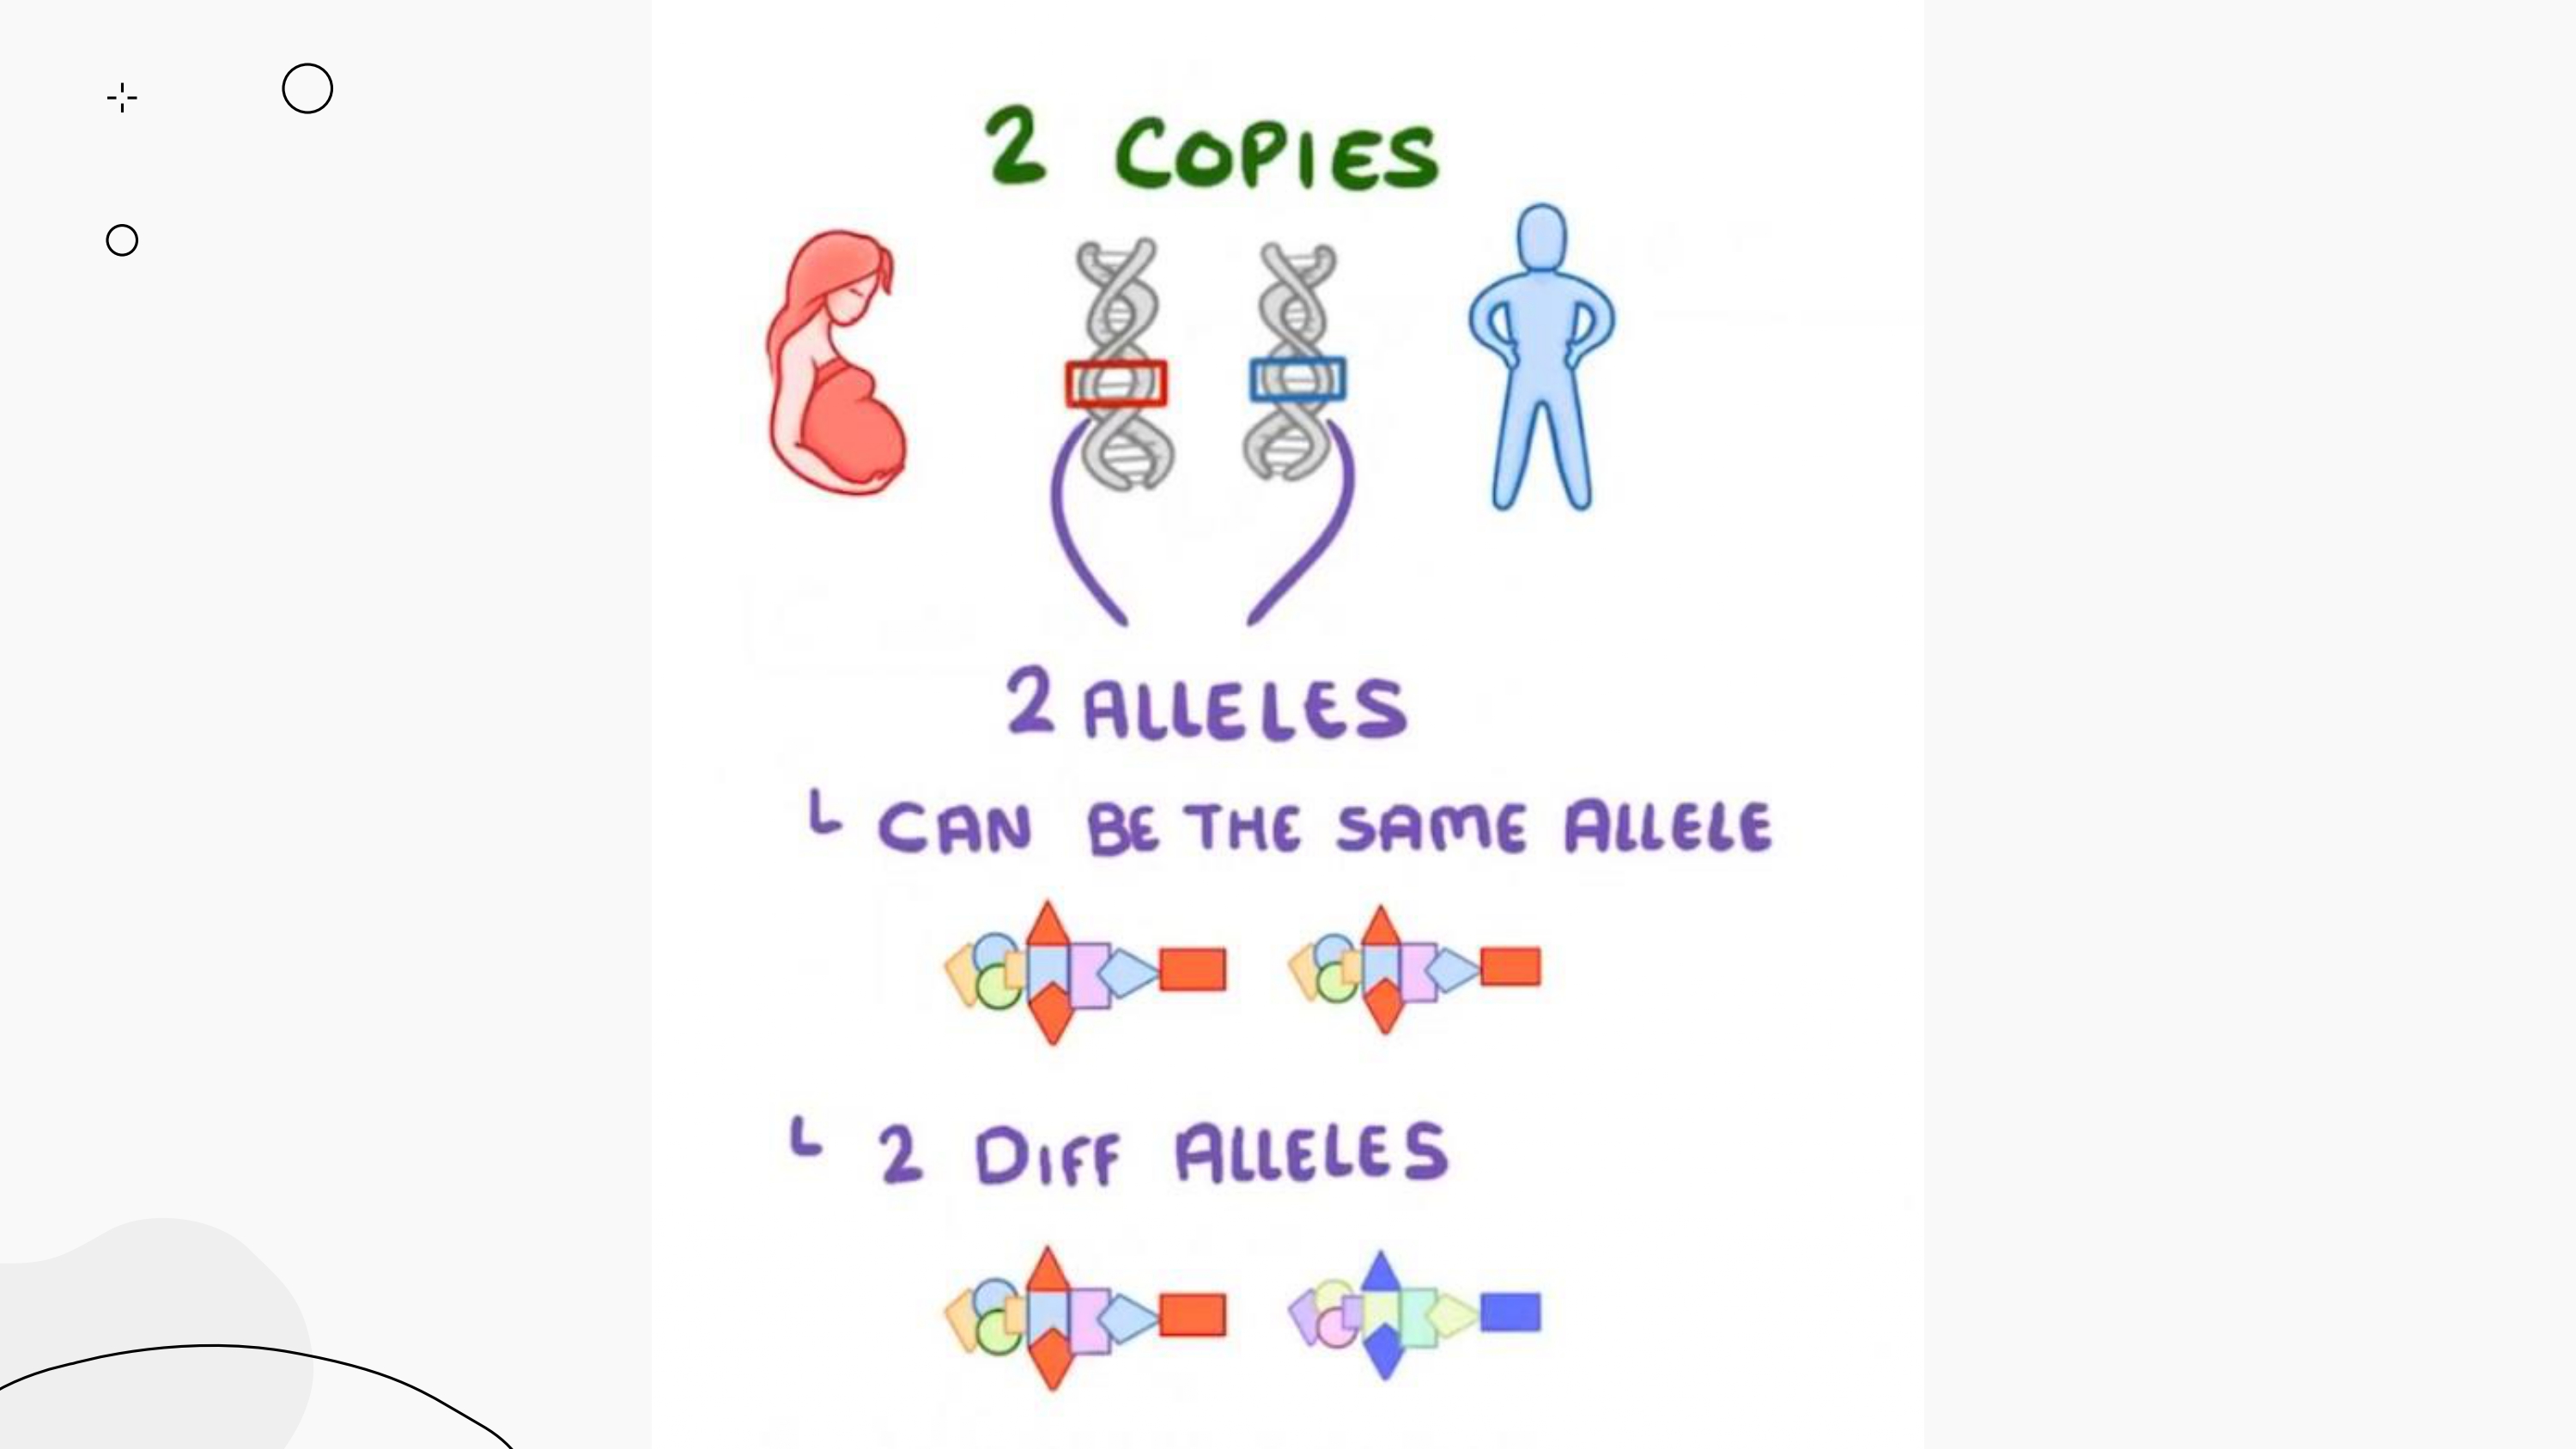 2 COPIES
2 ALLELES
CAN BE THE SAME ALLELE
2 DIFF ALLELES